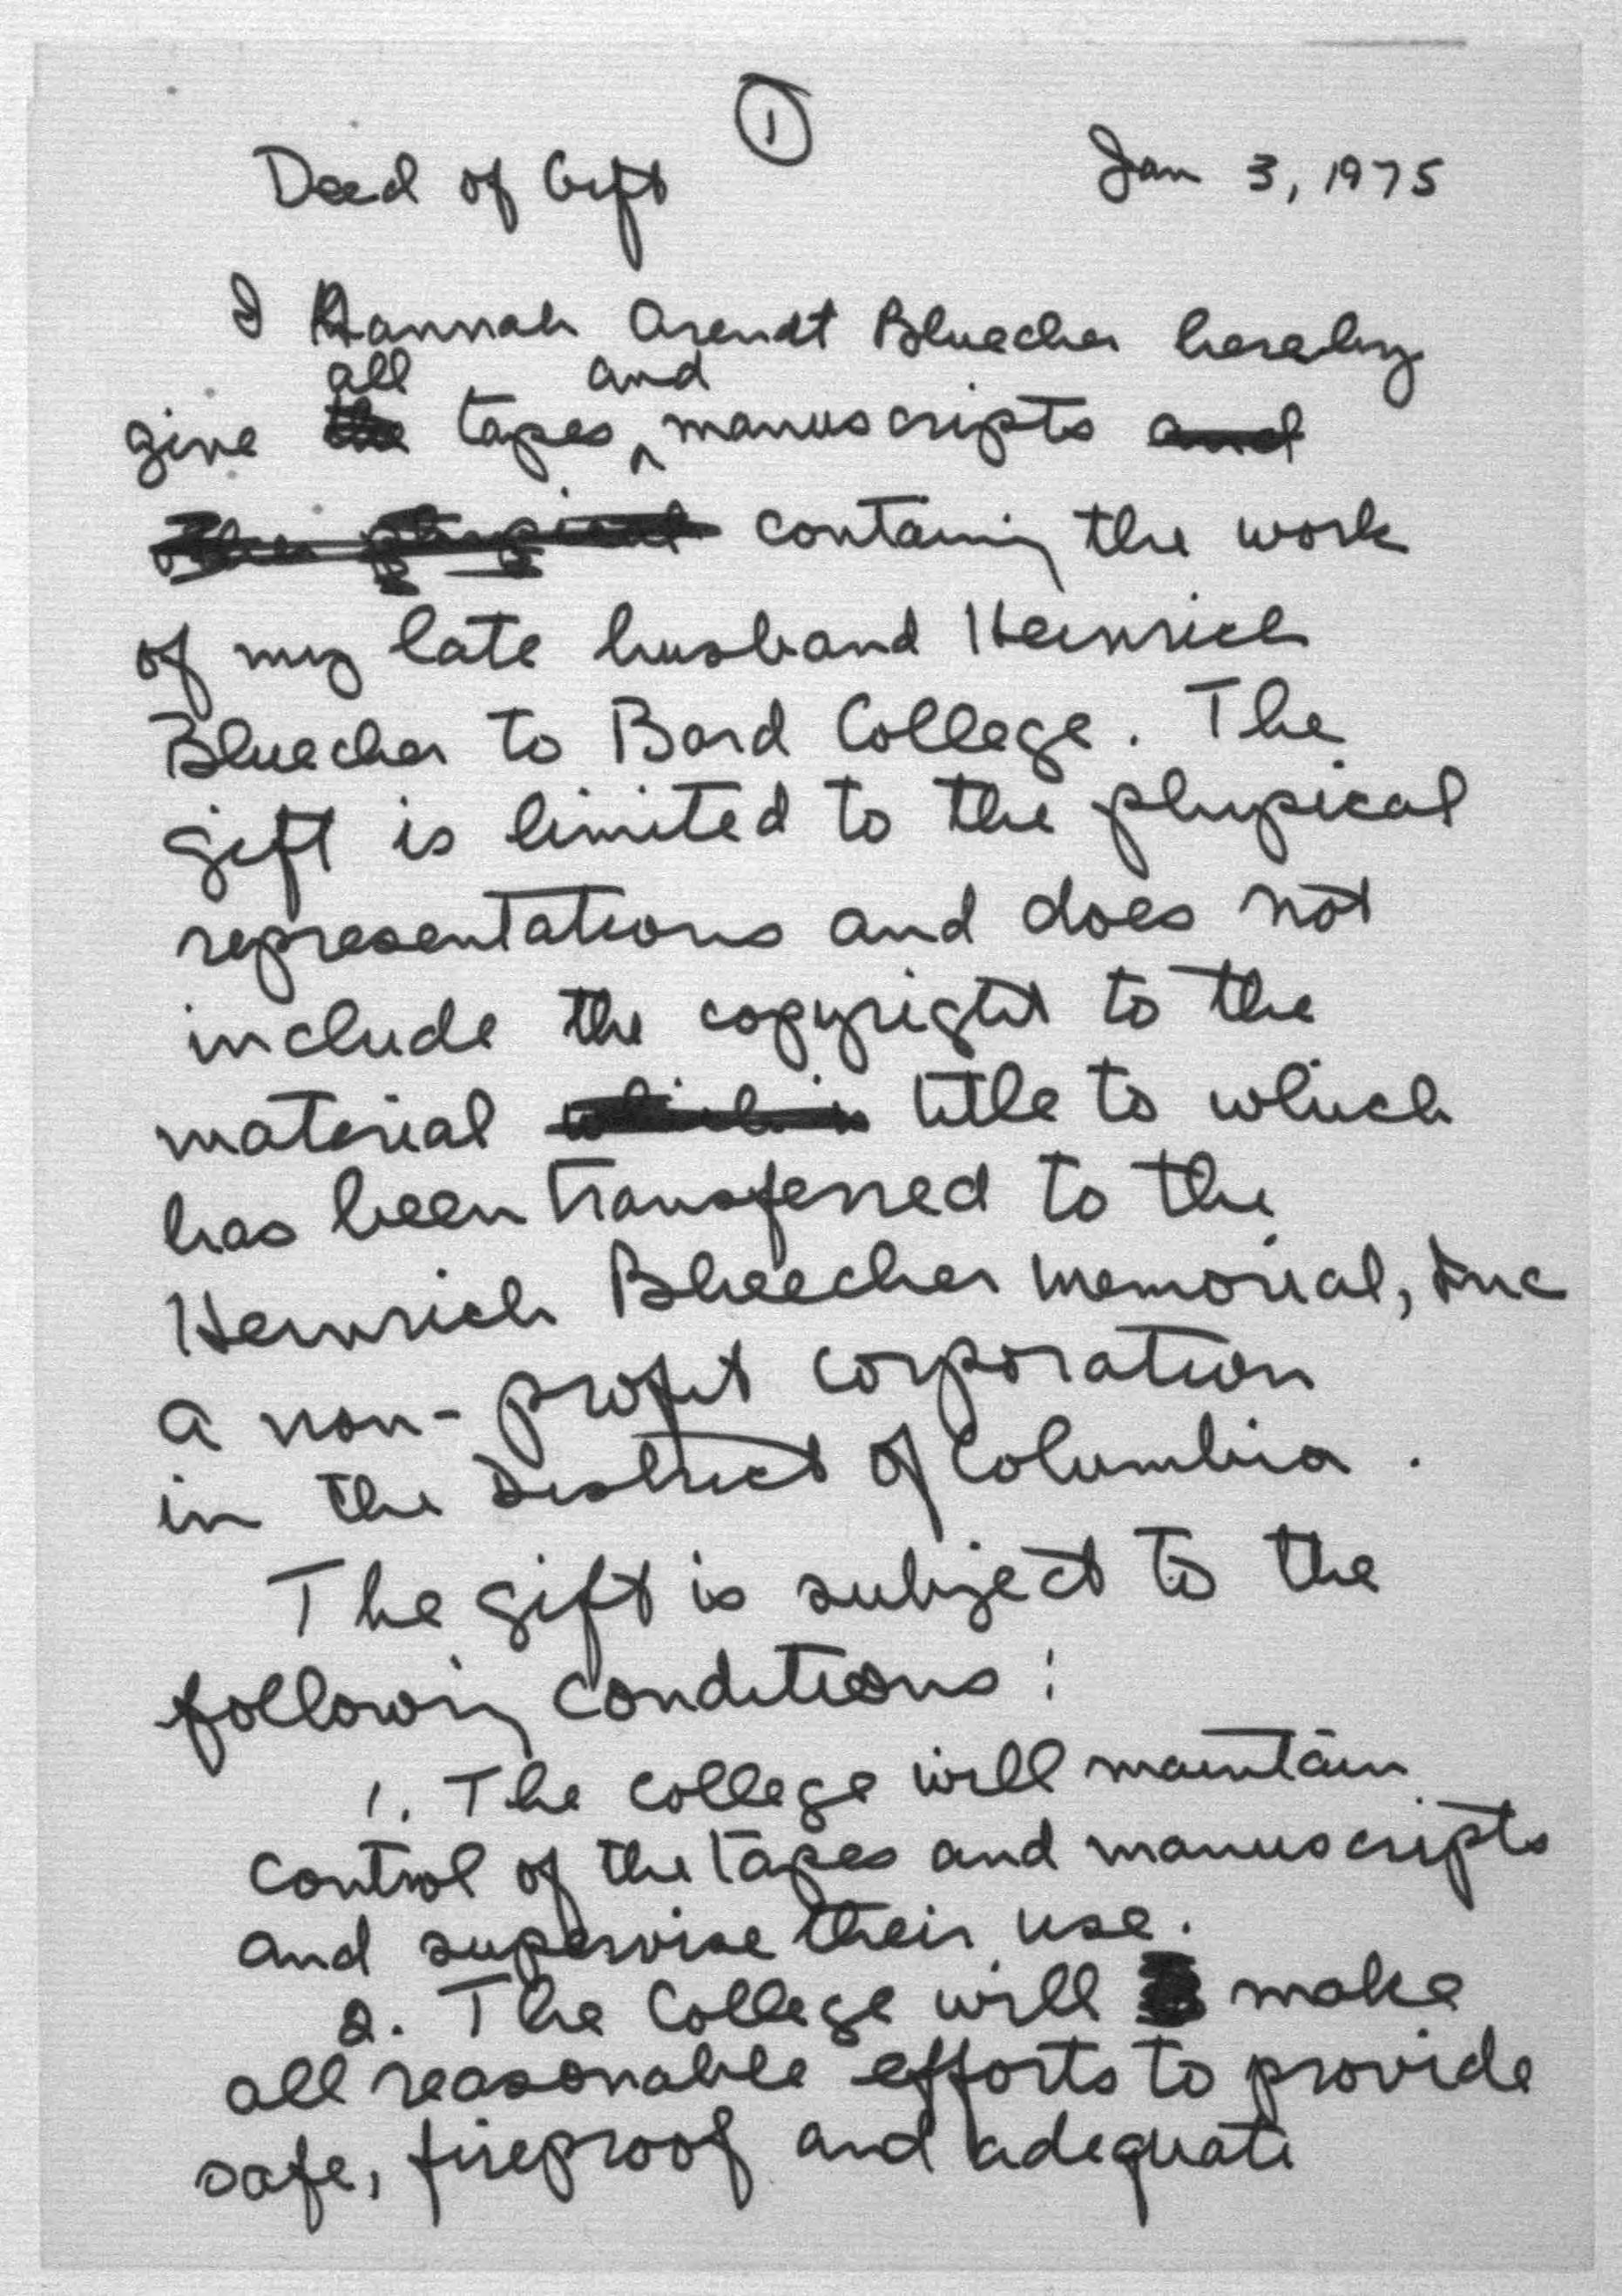 ①
Deed of Gift Jan 3, 1975
I Hannah Arendt Bluecher hereby
all and
give the tapes ^ manuscripts and
physical containing the work
of my late husband Heinrich
Bluecher to Bard College. The
gift is limited to the physical
representations and does not
include the copyright to the
material which is title to which
has been transferred to the
Heinrich Bluecher Memorial, Inc
a non-profit corporation
in the District of Columbia.
The gift is subject to the
following conditions:
1. The college will maintain
control of the tapes and manuscripts
and supervise their use.
2. The College will make
all reasonable efforts to provide
safe, fireproof and adequate